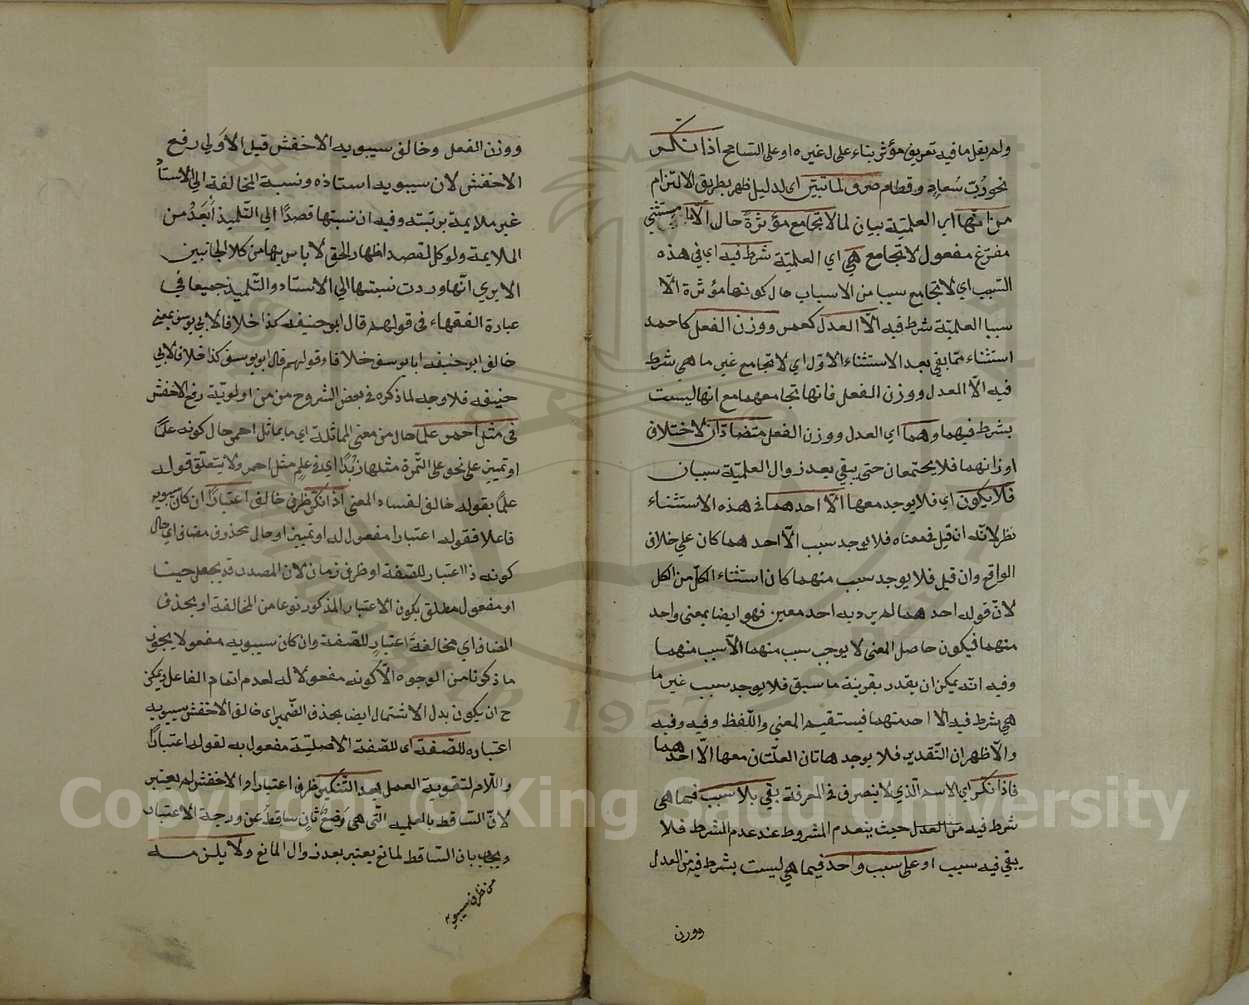 ولم يقل ما فيه تعريف مؤثر بناء على لغيره او على التسامح اذا نكر
نحو رُبّ سُعادٍ وقطام صرف لما تبين اي لدليل ظهر بطريق الالتزام
من انها اي العلمية بيان لما لا تجامع مؤثرة حال الا ما مستثنى
مفرغ مفعول لا تجامع هي اي العلمية شرط فيه اي في هذه
السبب اي لا تجامع سببا من الاسباب حال كونها مؤثرة الا
سببا العلمية شرط فيه الا العدل كعمر ووزن الفعل كاحمد
استثناء مما بقي بعد الاستثناء الاول اي لا تجامع غير ما هي شرط
فيه الا العدل ووزن الفعل فانها تجامعهما مع انها ليست
بشرط فيهما وهما اي العدل ووزن الفعل متضادان لاختلاف
اوزانهما فلا يجتمعان حتى يبقي بعد زوال العلمية سببان
فلا يكون اي فلا يوجد معها الا احدهما في هذه الاستثناء
نظر لانه ان قيل في معناه فلا يوجد سبب الا احدهما كان علي خلاف
الواقع وان قيل فلا يوجد سبب منهما كان استثناء الكل من الكل
لان قوله احدهما لم يرد به احد معين فهو ايضا بمعنى واحد
منهما فيكون حاصل المعنى لا يوجب سبب منهما الا سبب منهما
وفيه انه يمكن ان يقدر بقرينة ما سبق فلا يوجد سبب غير ما
هي شرط فيه الا احد منهما فيستقيم المعنى واللفظ وفيه وفيه
والاظهر ان التقدير فلا يوجد هاتان العلتان معها الا احدهما
فاذا نكر اي الاسم الذي لا ينصرف في المعرفة بقي بلا سبب فيما هي
شرط فيه من العدل حيث ينعدم المشروط عند عدم الشرط فلا
يبقي فيه سبب او على سبب واحد فيما هي ليست بشرط فيه من العدل
ووزن
ووزن الفعل وخالف سيبويه الاخفش قيل الاولي رفع
الاخفش لان سيبويه استاذه ونسبة المخالفة الي الاستاذ
غير ملايمة برتبته وفيه ان نسبتها قصدًا الي التلميذ أبعَدُ من
الملايمة ولو كل المقصد اظهار الحق لا باس بها من كلا الجانبين
الا يرى انها وردت نسبتها الي الاستاد والتلميذ جميعا في
عبارة الفقهاء في قولهم قال ابو حنيفه كذا خلافا لابي يوسف بمعنى
خالف ابو حنيفه ابا يوسف خلافا وقولهم قال ابو يوسف كذا خلافا لابي
حنيفه فلا وجه لما ذكره في بعض الشروح من من اولوية رفع الاخفش
في مثل احمر علمًا حال من معنى المماثلة اي ما يماثل احمر حال كونه علمًا
او تميز على نحو على التمرة مثلها زبدًا اي في علم مثل احمر ولا يتعلق قوله
علمًا بقوله خالف لفساد المعنى اذا نكر ظرف خالف اعتبارًا ان كان سيبويه
فاعلا فقوله اعتبارا مفعول له او تميز او حال بحذف مضاف اي حال
كونه ذا اعتبار للصفة او ظرف زمان لان المصدر قد يجعل حينا
او مفعول مطلق بكون الاعتبار المذكور نوعا من المخالفة او بحذف
المضاف اي مخالفة اعتبارٍ للصفة وان كان سيبويه مفعولا يجوز
ما ذكرنا من الوجوه الا كونه مفعولا له لعدم اتمام الفاعل ويمكن
ح ان يكون بدل الاشتمال ايضا بحذف الضمير اي خالف الاخفش سيبويه
اعتباره للصفة اي للصفة الاصلية مفعول به لقوله اعتبارًا
واللام لتقوية العمل بعد التنكير ظرف اعتبارا والاخفش لم يعتبر
لان الساقط بالعلمية التي هي وَضعٌ ثانٍ ساقط عن درجة الاعتبار
ويجاب بان الساقط لمانع يعتبر بعد زوال المانع ولا يلزمه
من طرف سيبويه
Copyright © King Saud University
1957